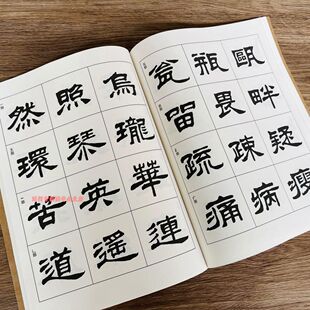 然 照 烏
環 琴 瓏
苦 英 華
道 遥 連
瓮 瓶 甌
留 畏 畔
疏 疎 疑
痛 病 癭